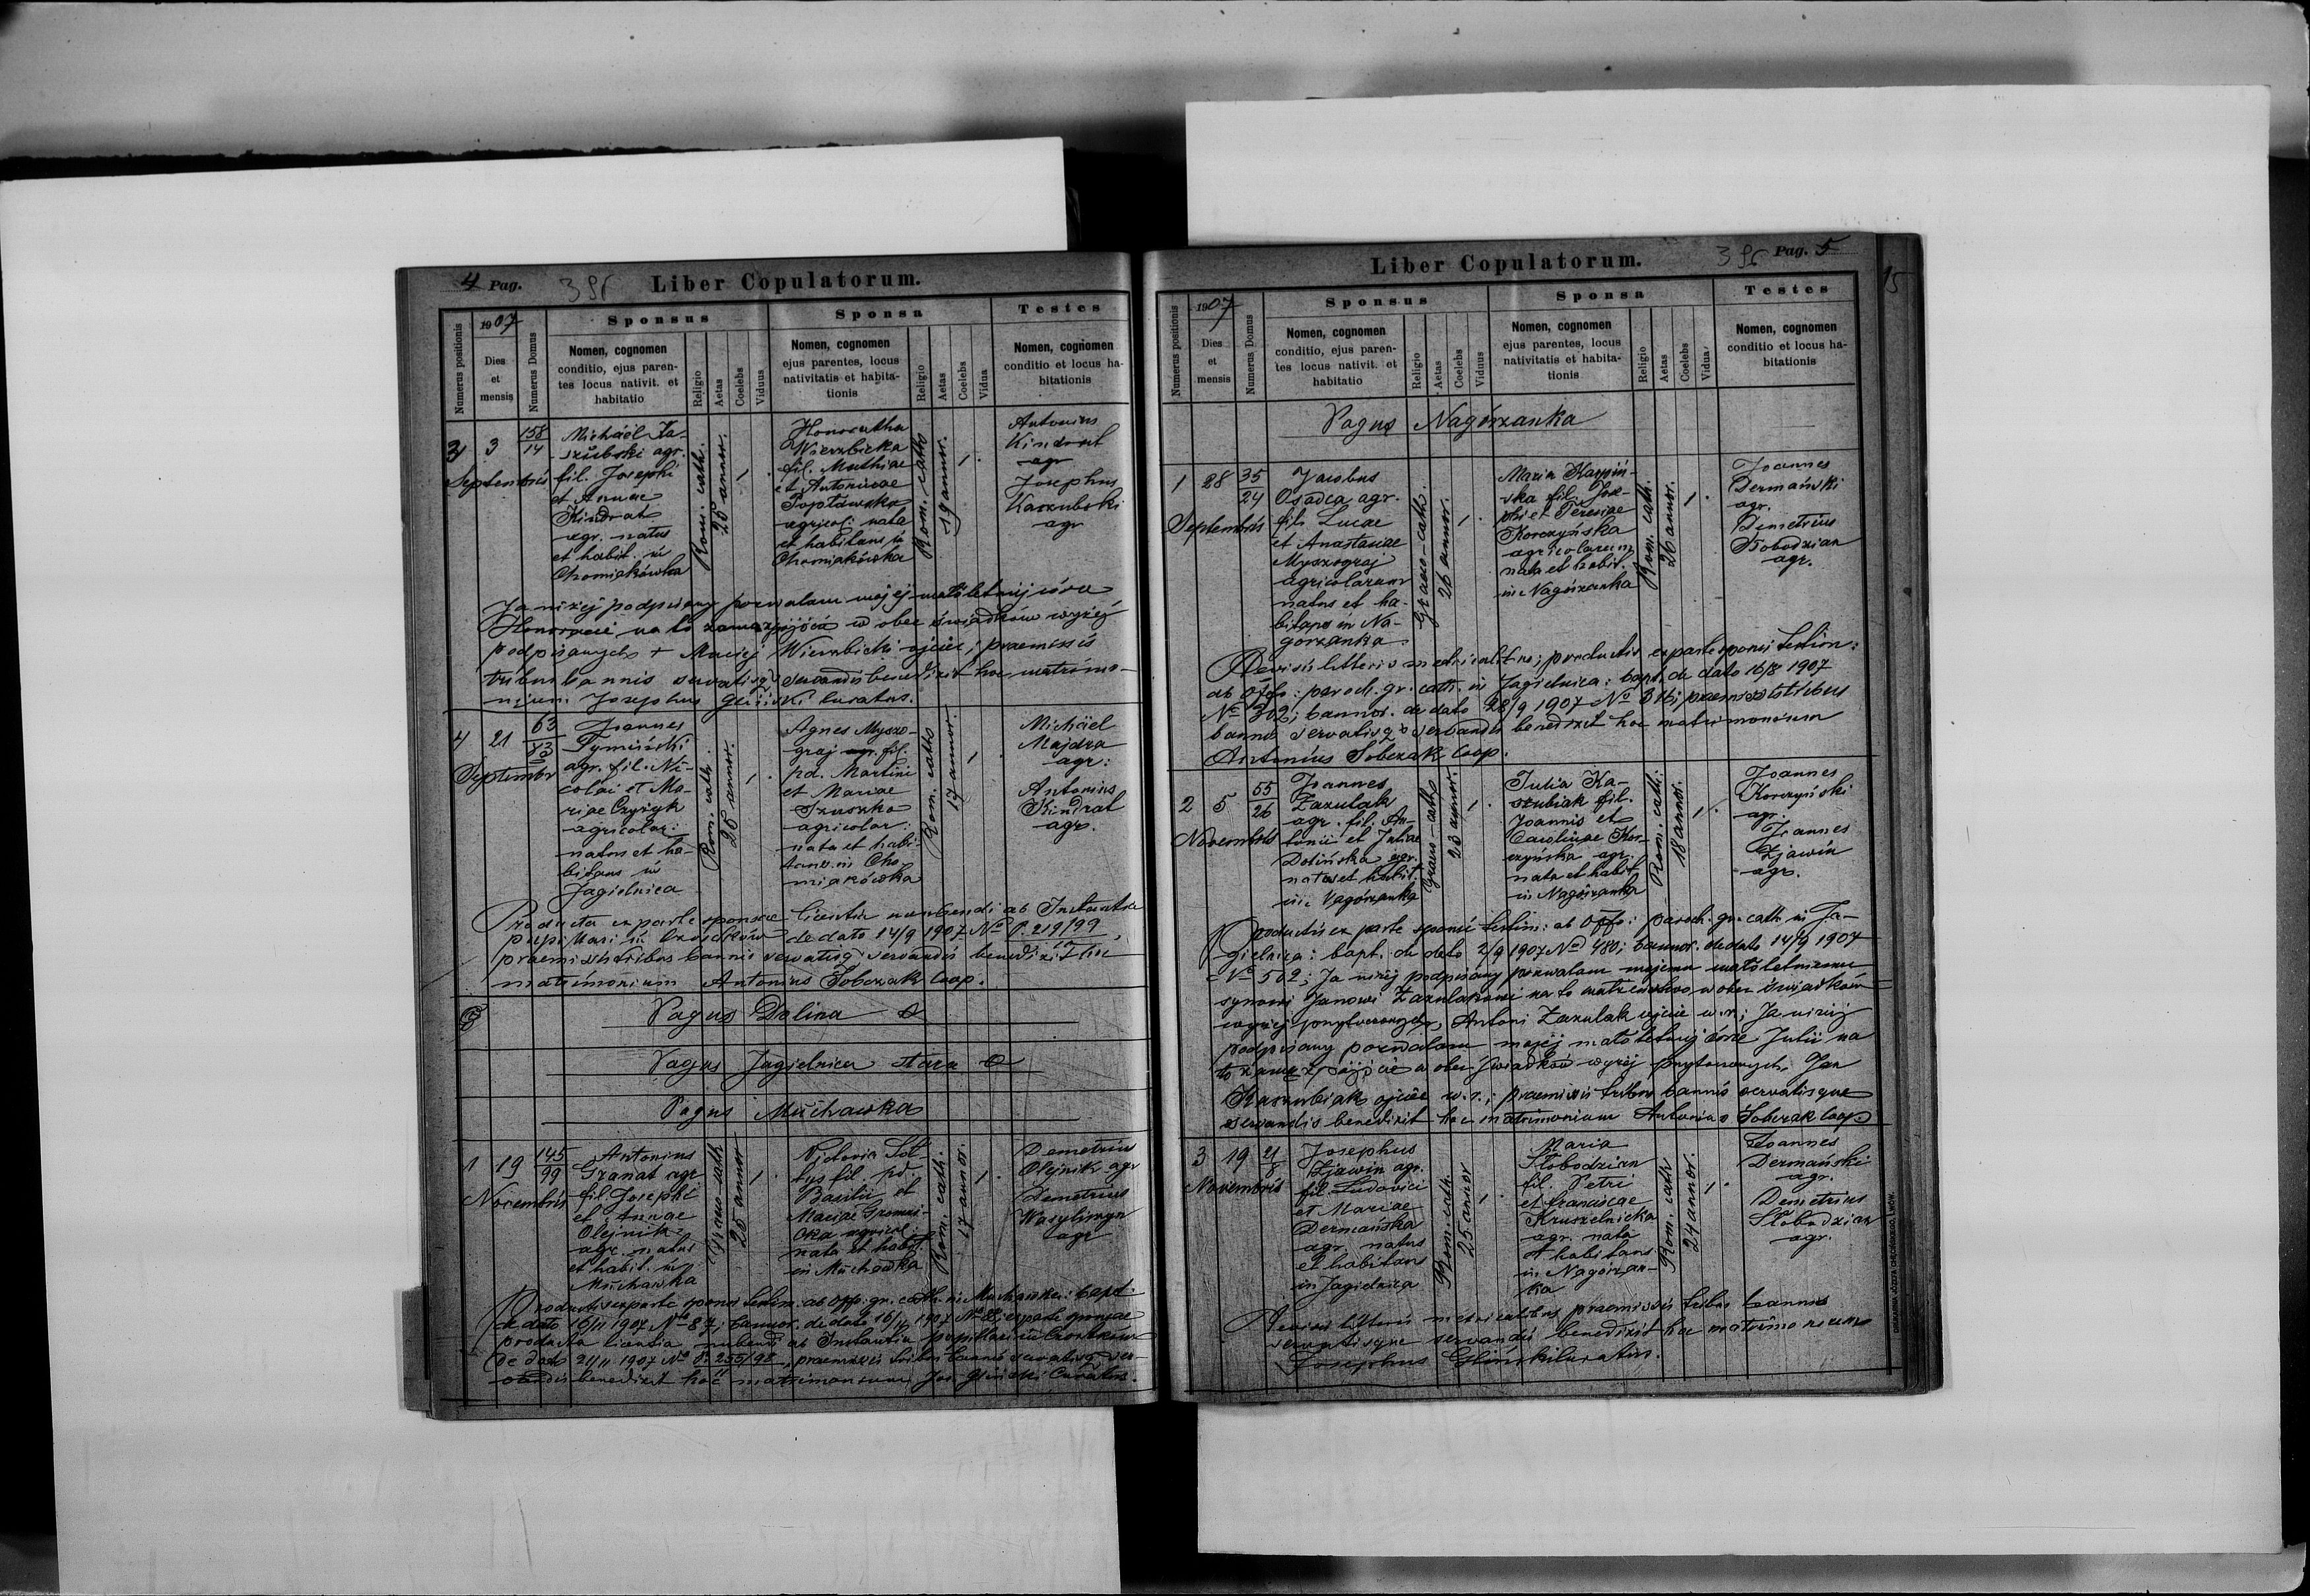 4 Pag.
395
Liber Copulatorum.
Numerus positionis
1907
Dies
et
mensis
Numerus Domus
Sponsus
Nomen, cognomen
conditio, ejus paren-
tes locus nativit. et
habitatio
Religio
Aetas
Coelebs
Viduus
Sponsa
Nomen, cognomen
ejus parentes, locus
nativitatis et habita-
tionis
Religio
Aetas
Coelebs
Vidua
Testes
Nomen, cognomen
conditio et locus ha-
bitationis
3
3
Septembris
158
14
Michaël Ka-
szubski agr.
fil. Josephi
et Annae
Kindrat
agr. natus
et habit. in
Chomiakówka
Rom. cath.
25 annor.
Honoratha
Wierzbicka
fil. Mathiae
et Antoninae
Popławska
agricol. nata
et habitans in
Chomiakówka
Rom. cath.
19 annor.
Antonius
Kindrat
agr
Josephus
Kaszubski
agr
Ja niżej podpisany pozwalam mojej małoletniej córce
Honoracie na to zamążpójście w obec świadków wyżej
podpisanych + Maciej Wierzbicki ojciec; praemissis
tribus bannis servatisq servandis benedixit hoc matrimo-
nium. Josephus Gliński Curatus.
4
21
Septembr
63
83
Joannes
Tymiński
agr. fil. Ni-
colai et Ma-
riae Czyżyk
agricolar:
natus et ha-
bitans in
Jagielnica
Rom. cath.
25 annor.
Agnes Myszo-
graj fil.
pd. Martini
et Mariae
Szuszko
agricolar:
nata et habi-
tans in Cho-
miakówka
Rom. cath
17 annor.
Michäel
Majdza
agr:
Antonius
Kindrat
agr.
Producta ex parte sponsae licentia nubendi ab Instantia
pupillari in Czortków de dato 14/9 1907 No P. 219/99,
praemissis tribus bannis servatisq servandis benedixit hoc
matrimonium Antonius Sobczak Coop.
Pagus Dolina
Pagus Jagielnica stara
Pagus Muchawka
1
19
Novembris
145
99
Antonius
Granat agr
fil Josephi
et Annae
Olejnik
agr. natus
et habit. in
Muchawka
Graeco cath
25 annor
Victoria Soł-
tys fil. pd.
Basilii et
Mariae
agricol:
nata et habit.
in Muchawka
Rom. cath.
17 annor.
Demetrius
Olejnik agr
Demetrius
Wasylinyn
agr
Productis ex parte sponsi testim. ab Offo: gr. cath. in Muchawka: bapt.
de dato 16/11 1907 No 87; bannor. de dato 16/11 1907 No 88; ex parte sponsae
producta licentia nubendi ab Instantia pupillari in Czortków
de dato 21/11 1907 No P. 255/98, praemissis tribus bannis servatisq ser-
vandis benedixit hoc matrimonium Jos. Gliński Curatus.
Liber Copulatorum.
395
Pag. 5
15
Numerus positionis
1907
Dies
et
mensis
Numerus Domus
Sponsus
Nomen, cognomen
conditio, ejus paren-
tes locus nativit. et
habitatio
Religio
Aetas
Coelebs
Viduus
Sponsa
Nomen, cognomen
ejus parentes, locus
nativitatis et habita-
tionis
Religio
Aetas
Coelebs
Vidua
Testes
Nomen, cognomen
conditio et locus ha-
bitationis
Pagus Nagórzanka
1
28
Septembris
35
24
Jacobus
Osadca agr.
fil. Lucae
et Anastasiae
Myszograj
agricolarum
natus et ha-
bitans in Na-
górzanka
Graeco-cath.
26 annor.
Maria Karpiń-
ska fil. Jose-
phi et Teresiae
Korczyńska
agricolarum
nata et habit.
in Nagórzanka
Rom. cath.
26 annor.
Joannes
Dermański
agr.
Demetrius
Słobodzian
agr.
Revisis litteris metricalibus; productis ex parte sponsi testim:
ab Offo: paroch. gr. cath. in Jagielnica: bapt. de dato 16/8 1907
No 302; bannor. de dato 28/9 1907 No 316; praemissis tribus
bannis servatisq servandis benedixit hoc matrimonium
Antonius Sobczak Coop.
2
5
Novembris
55
26
Joannes
Zazulak
agr. fil. An-
tonii et Juliae
Dolińska agr.
natus et habit.
in Nagórzanka
Graeco-cath
23 annor.
Julia Ka-
szubiak fil.
Joannis et
Carolinae Kor-
czyńska agr.
nata et habit.
in Nagórzanka
Rom. cath.
18 annor.
Joannes
Korczyński
agr.
Joannes
Zjawin
agr.
Productis ex parte sponsi testim: ab Offo: paroch. gr. cath. in Ja-
gielnica: bapt. de dato 2/9 1907 No 480; bannor. de dato 14/9 1907
No 502; Ja niżej podpisany pozwalam mojemu małoletniemu
synowi Janowi Zazulakowi na to małżeństwo w obec świadków
wyżej przytoczonych, Antoni Zazulak ojciec w.r.; Ja niżej
podpisany pozwalam mojej małoletniej córce Julii na
to zamążpójście w obec świadków wyżej przytoczonych, Jan
Kaszubiak ojciec w.r.; praemissis tribus bannis servatisque
servandis benedixit hoc matrimonium Antonius Sobczak Coop.
3
19
Novembris
21
8
Josephus
Zjawin agr.
fil. Ludovici
et Mariae
Dermańska
agr. natus
et habitans
in Jagielnica
Rom. cath.
25 annor
Maria
Słobodzian
fil. Petri
et Franciscae
Kruszelnicka
agr. nata
et habitans
in Nagórzan-
ka
Rom. cath
24 annor.
Joannes
Dermański
agr.
Demetrius
Słobodzian
agr.
Revisis litteris metricalibus praemissis tribus bannis
servatisque servandis benedixit hoc matrimonium
Josephus Gliński Curatus.